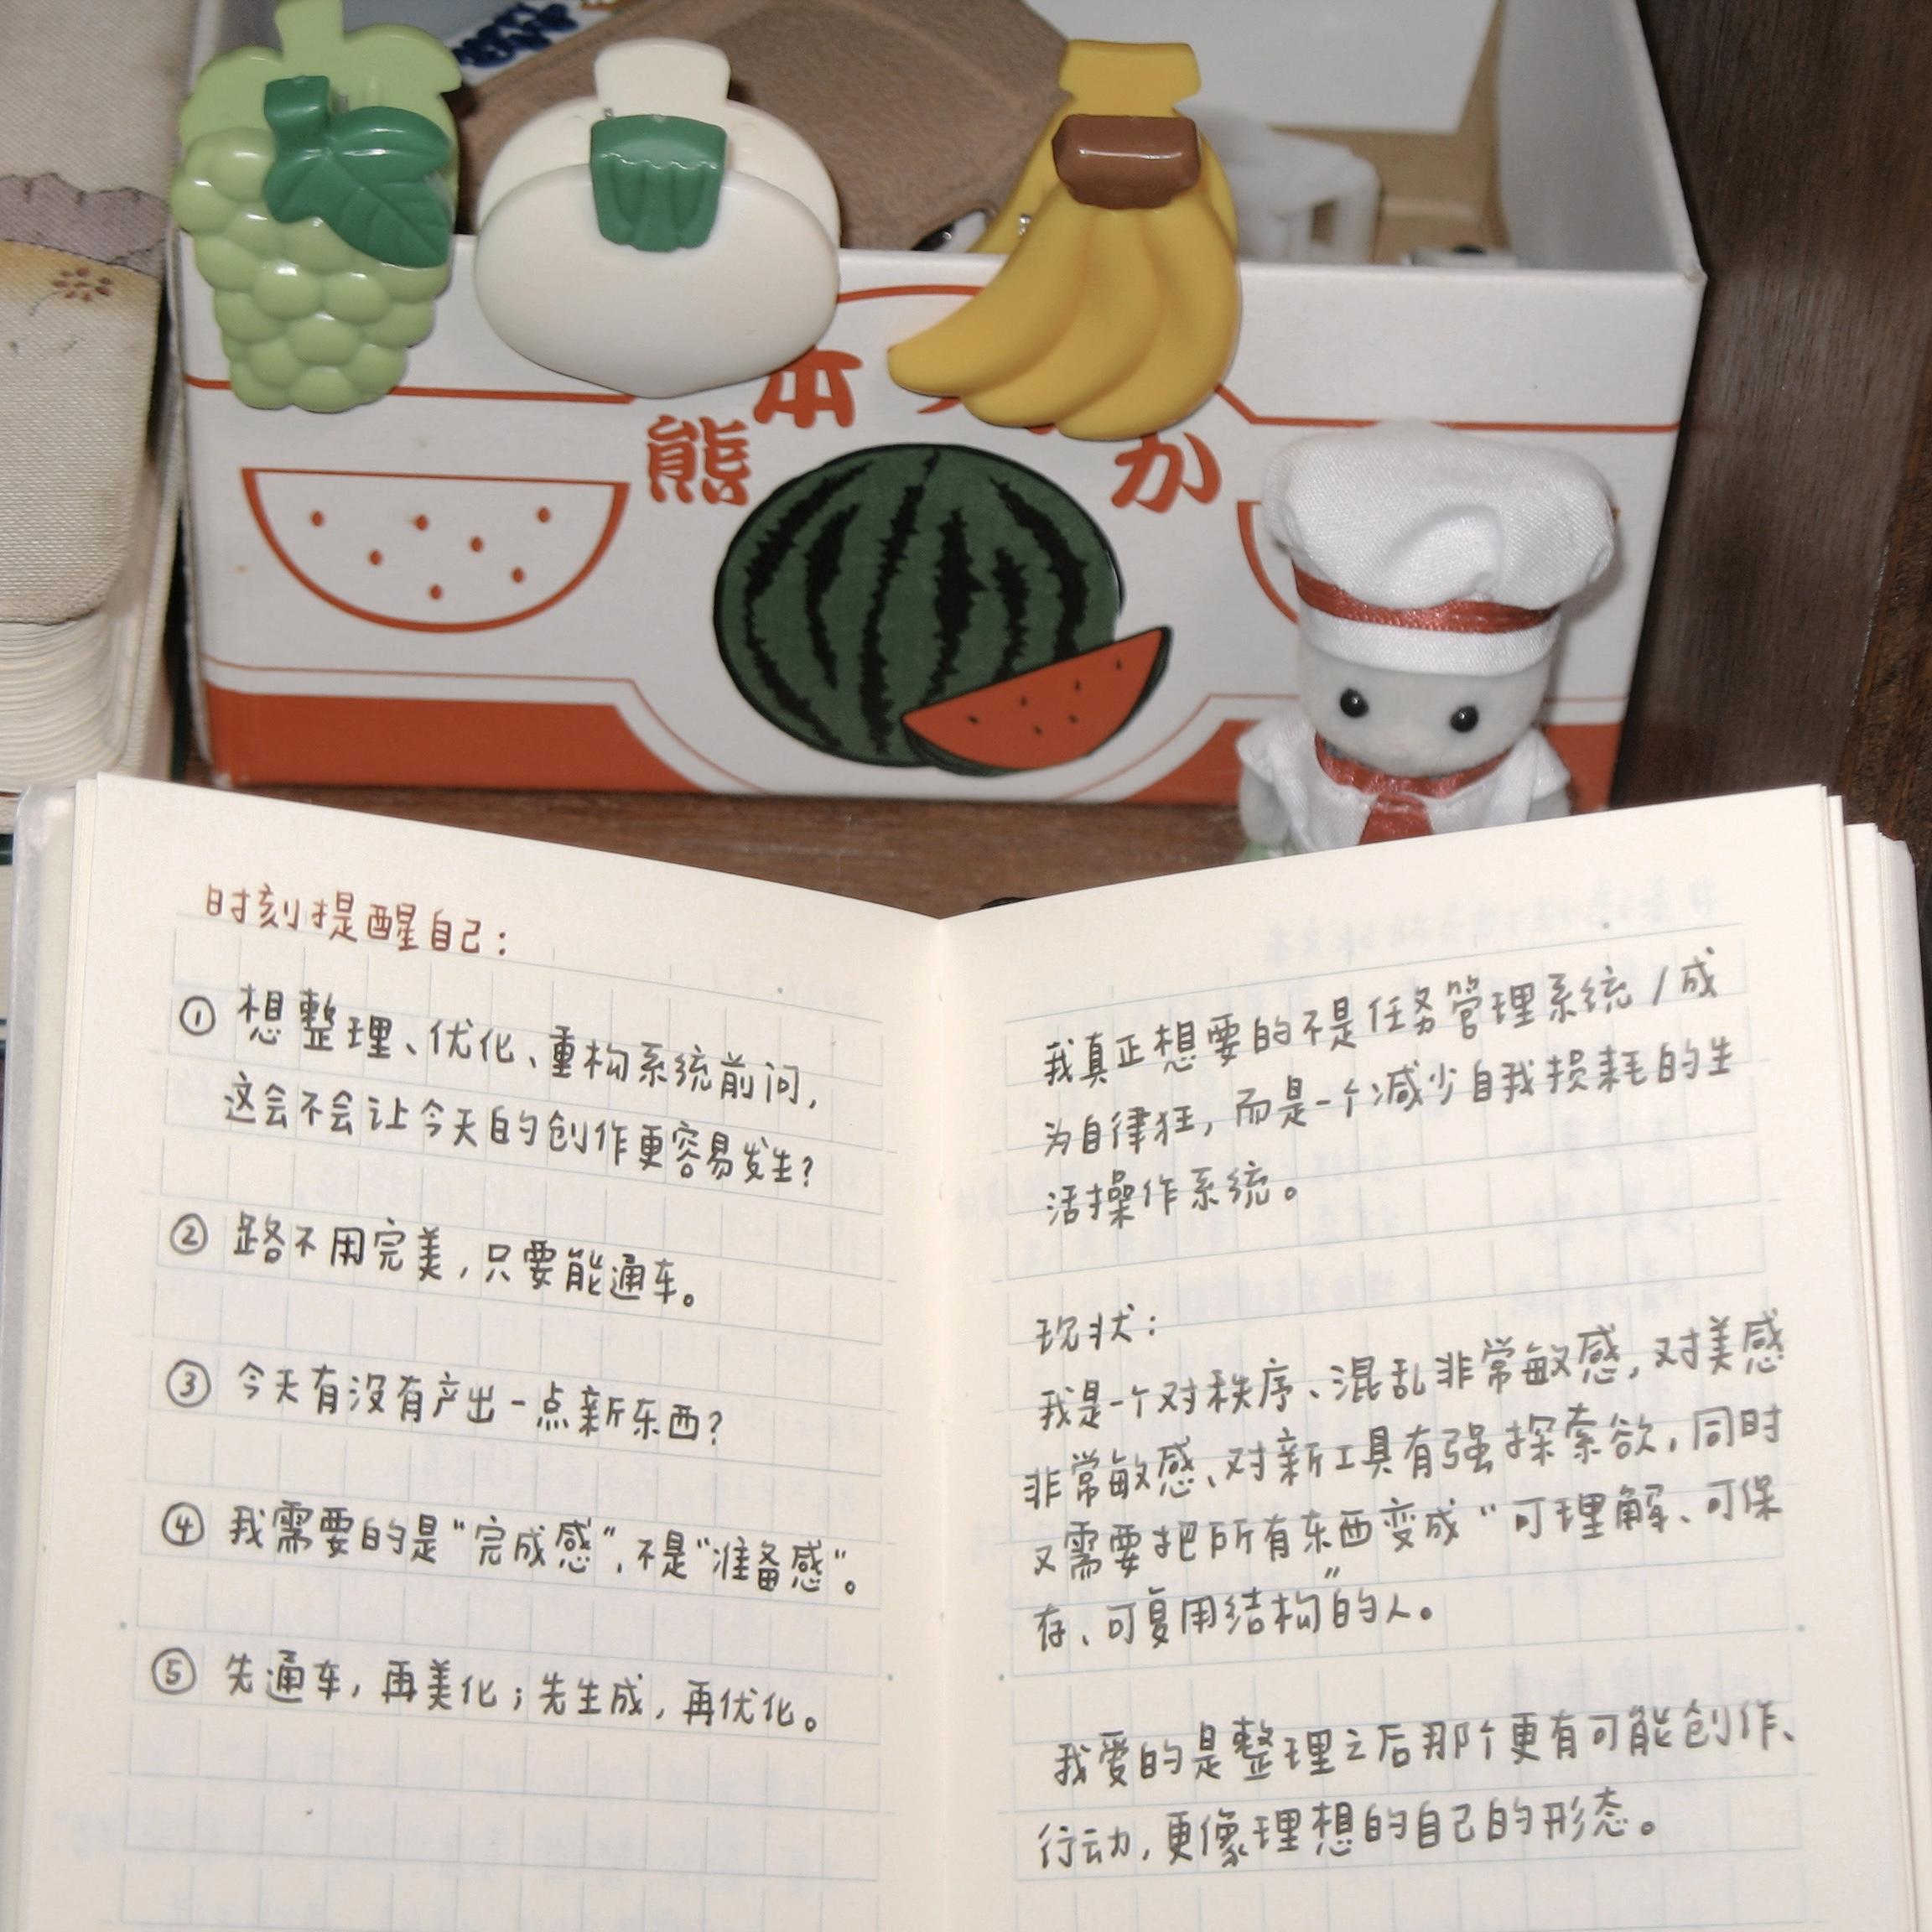 熊本 か
时刻提醒自己：
① 想整理、优化、重构系统前问，
这会不会让今天的创作更容易发生？
② 路不用完美，只要能通车。
③ 今天有没有产出一点新东西？
④ 我需要的是“完成感”，不是“准备感”。
⑤ 先通车，再美化；先生成，再优化。
我真正想要的不是任务管理系统/成
为自律狂，而是一个减少自我损耗的生
活操作系统。
现状：
我是一个对秩序、混乱非常敏感，对美感
非常敏感、对新工具有强探索欲，同时
又需要把所有东西变成“可理解、可保
存、可复用结构”的人。
我爱的是整理之后那个更有可能创作、
行动，更像理想的自己的形态。